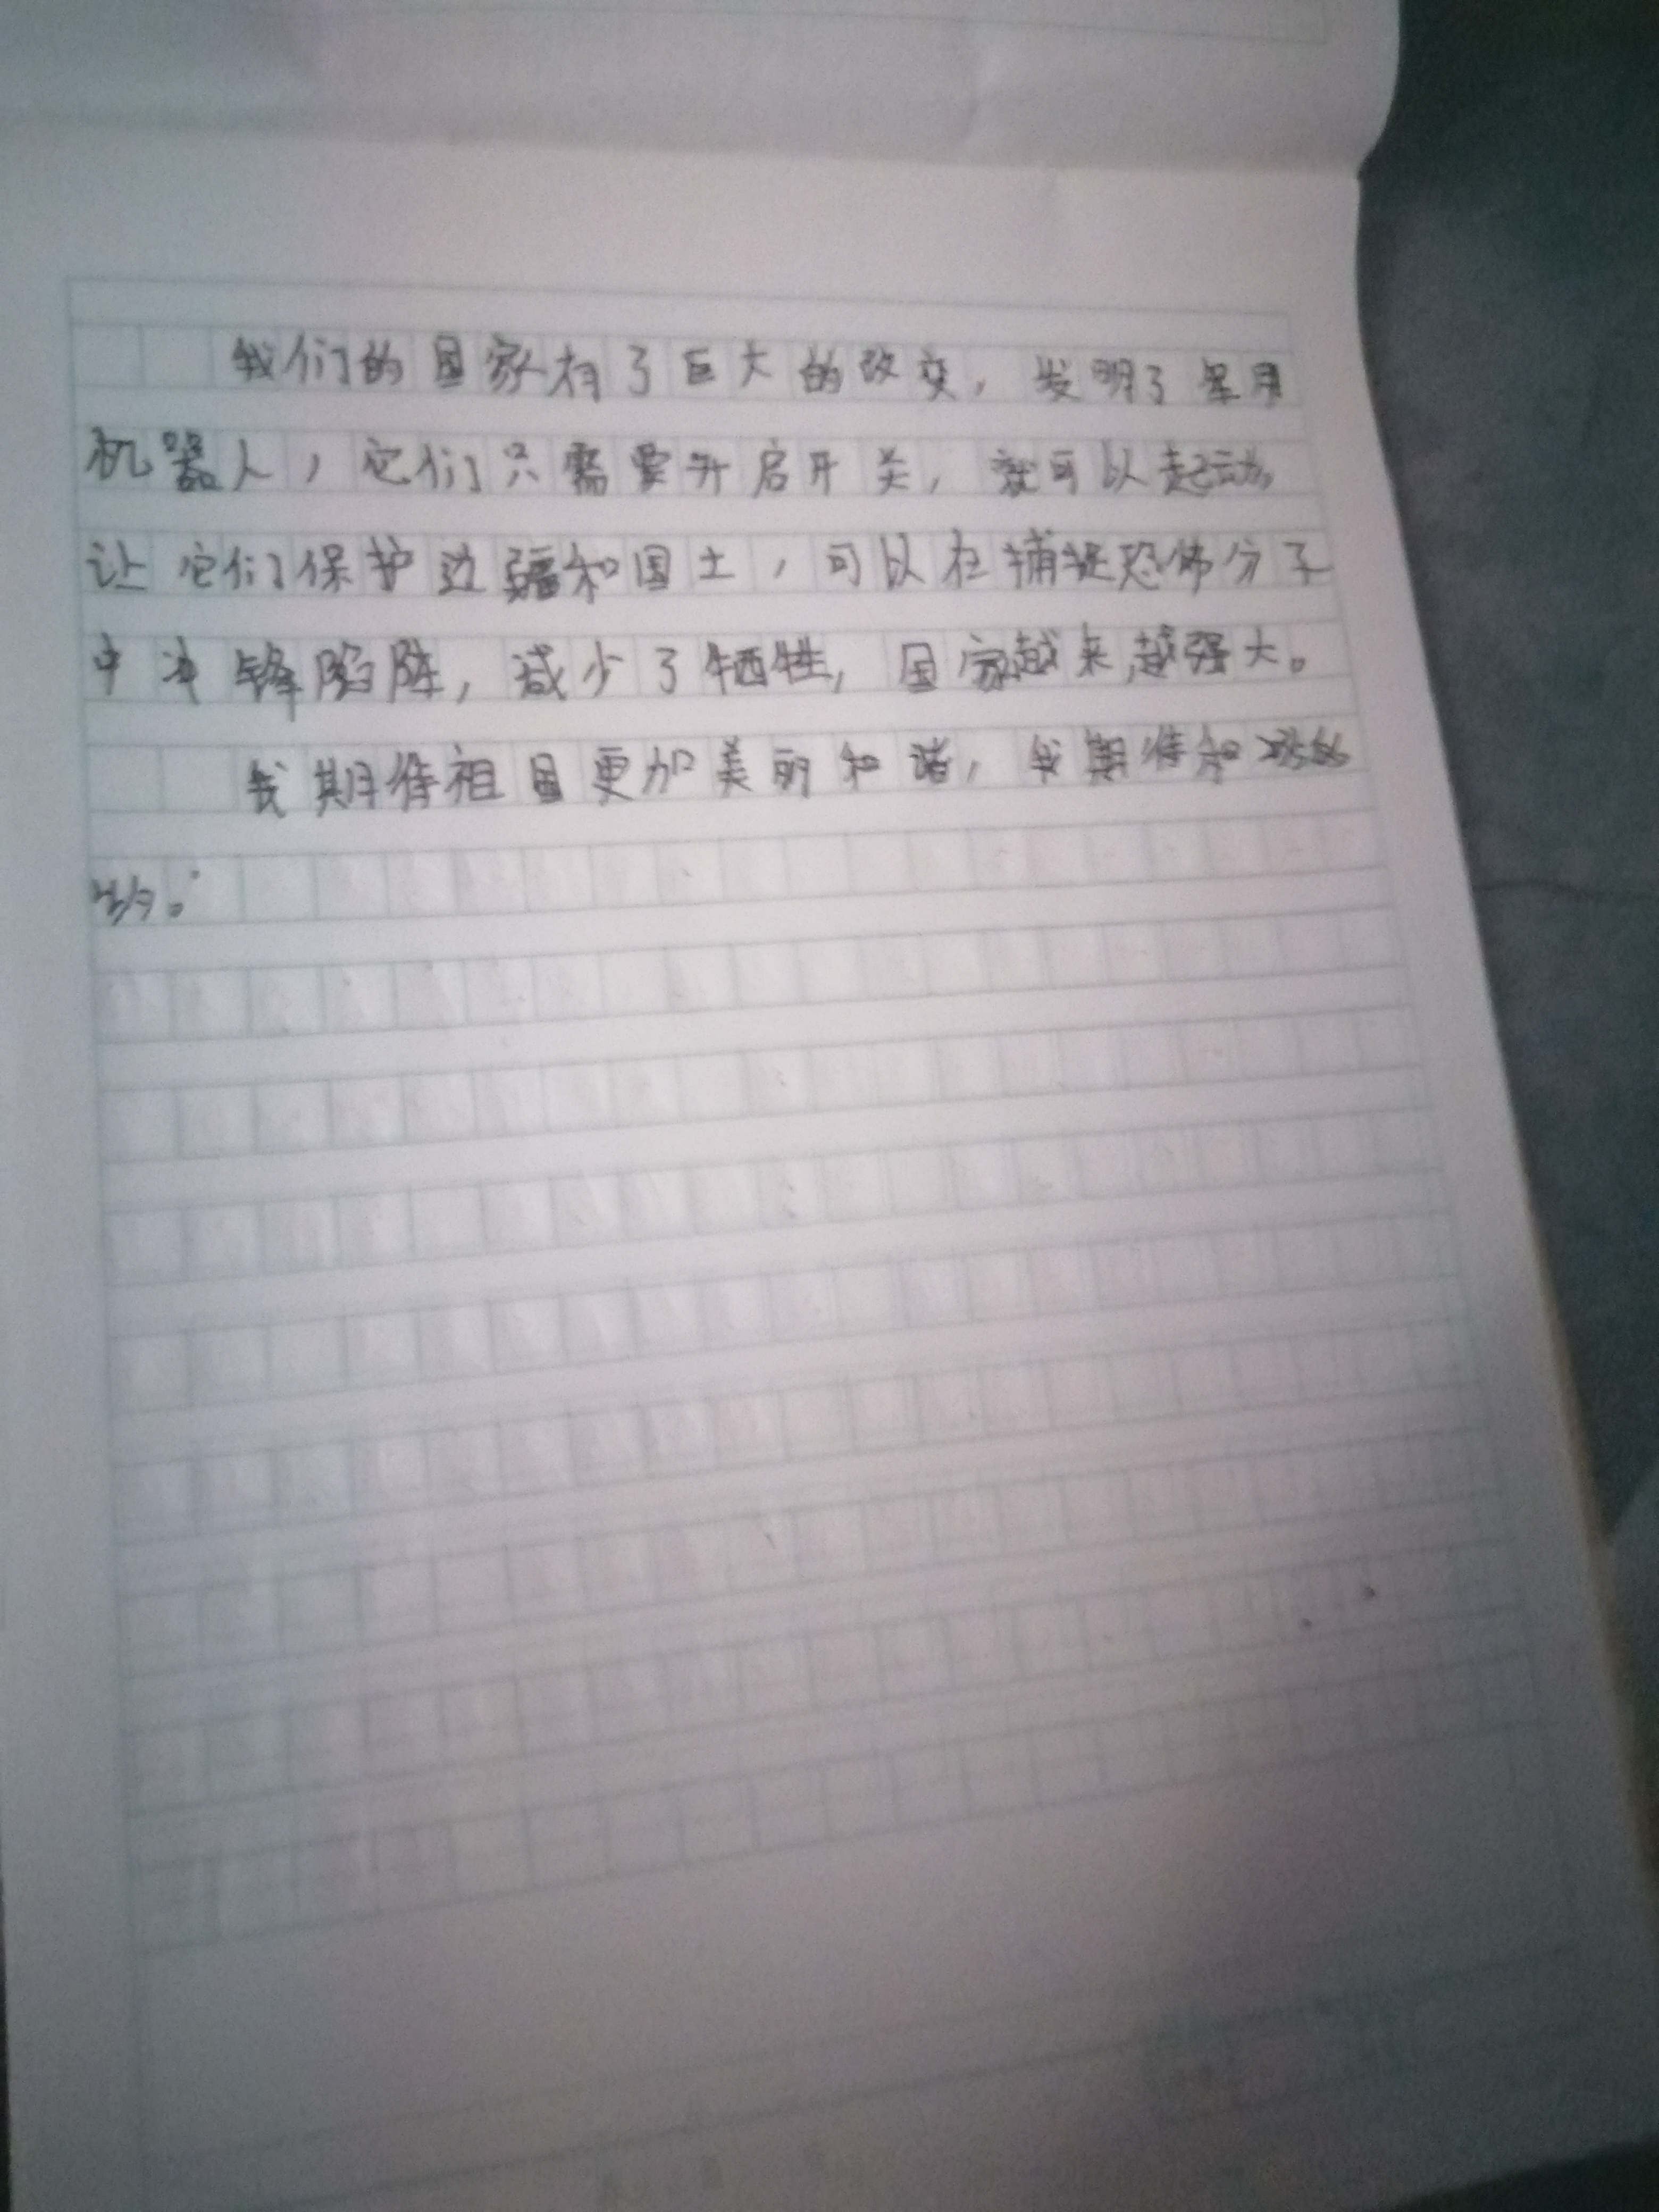 我们的国家有了巨大的改变，发明了军用
机器人，它们只需要开启开关，就可以起动，
让它们保护边疆和国土，可以在捕捉恐怖分子
中冲锋陷阵，减少了牺牲，国家越来越强大。
我期待祖国更加美丽和谐，我期待和
。